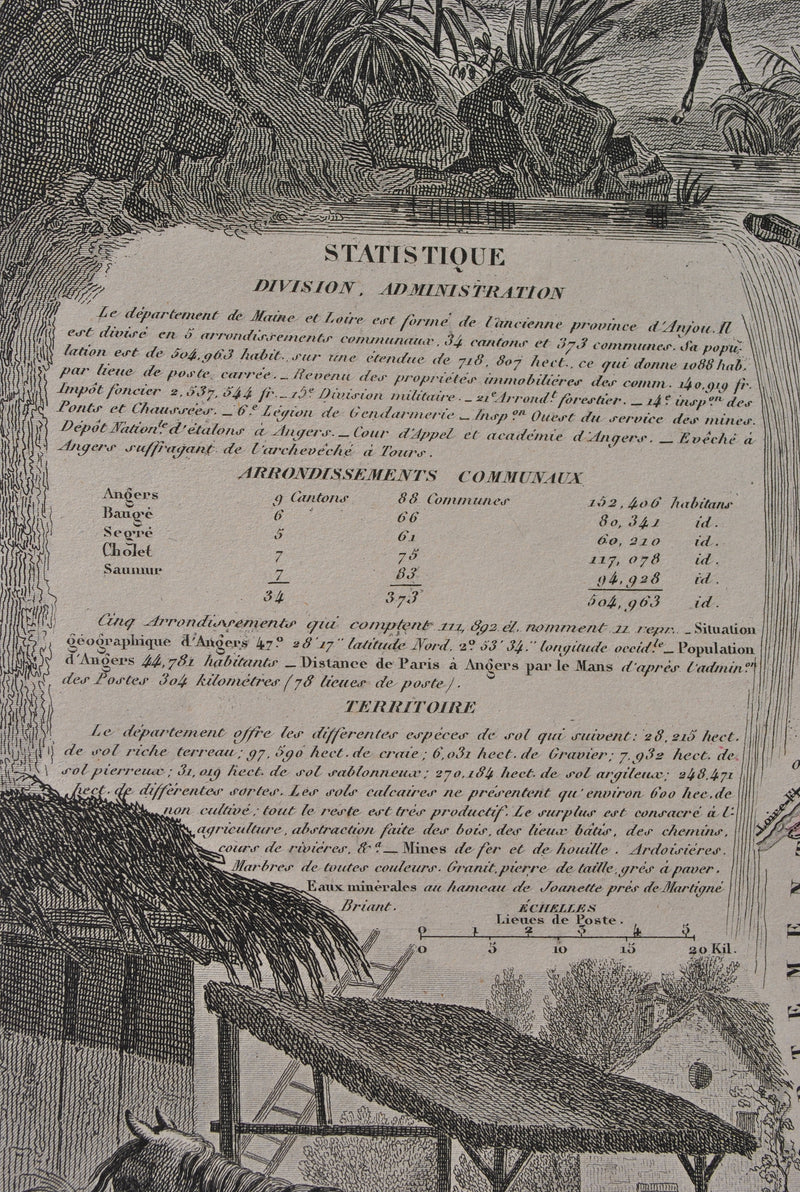 STATISTIQUE
DIVISION, ADMINISTRATION
Le département de Maine et Loire est formé de l'ancienne province d'Anjou. Il
est divisé en 5 arrondissements communaux, 34 cantons et 373 communes. Sa popu-
lation est de 504,963 habit., sur une étendue de 718, 807 hect., ce qui donne 1088 hab.
par lieue de poste, carrée. _ Revenu des propriétés immobilières des comm. 140,919 fr.
Impôt foncier 2,537,544 fr. _ 15e Division militaire. _ 21e Arrondt forestier. _ 14e inspon des
Ponts et Chaussées. _ 6e Légion de Gendarmerie _ Inspon Ouest du service des mines.
Dépôt Nationle d'étalons à Angers. _ Cour d'Appel et académie d'Angers. _ Evêché à
Angers suffragant de l'archevêché à Tours.
ARRONDISSEMENTS COMMUNAUX
Angers 9 Cantons 88 Communes 152,406 habitans
Baugé 6 66 80,341 id.
Segré 5 61 60,210 id.
Cholet 7 75 117,078 id.
Saumur 7 83 94,928 id.
34 373 504,963 id.
Cinq Arrondissements qui comptent 111,892 él. nomment 11 repr. _ Situation
géographique d'Angers 47° 28' 17" latitude Nord, 2° 53' 34" longitude occidle _ Population
d'Angers 44,781 habitants _ Distance de Paris à Angers par le Mans d'après l'adminon
des Postes 304 kilométres (78 lieues de poste).
TERRITOIRE
Le département offre les différentes espéces de sol qui suivent: 28,215 hect.
de sol riche terreau; 97,590 hect. de craie; 6,031 hect. de Gravier; 7,932 hect. de
sol pierreux; 31,019 hect. de sol sablonneux; 270,184 hect. de sol argileux; 248,471
hect. de différentes sortes. Les sols calcaires ne présentent qu'environ 600 hec. de
non cultivé; tout le reste est trés productif. Le surplus est consacré à l'
agriculture, abstraction faite des bois, des lieux bâtis, des chemins,
cours de rivières, &a _ Mines de fer et de houille. Ardoisières.
Marbres de toutes couleurs. Granit, pierre de taille, grés à paver.
Eaux minérales au hameau de Joanette prés de Martigné
Briant.
ÉCHELLES
Lieues de Poste.
0 1 2 3 4 5
0 5 10 15 20 Kil.
Loire
TEMEN